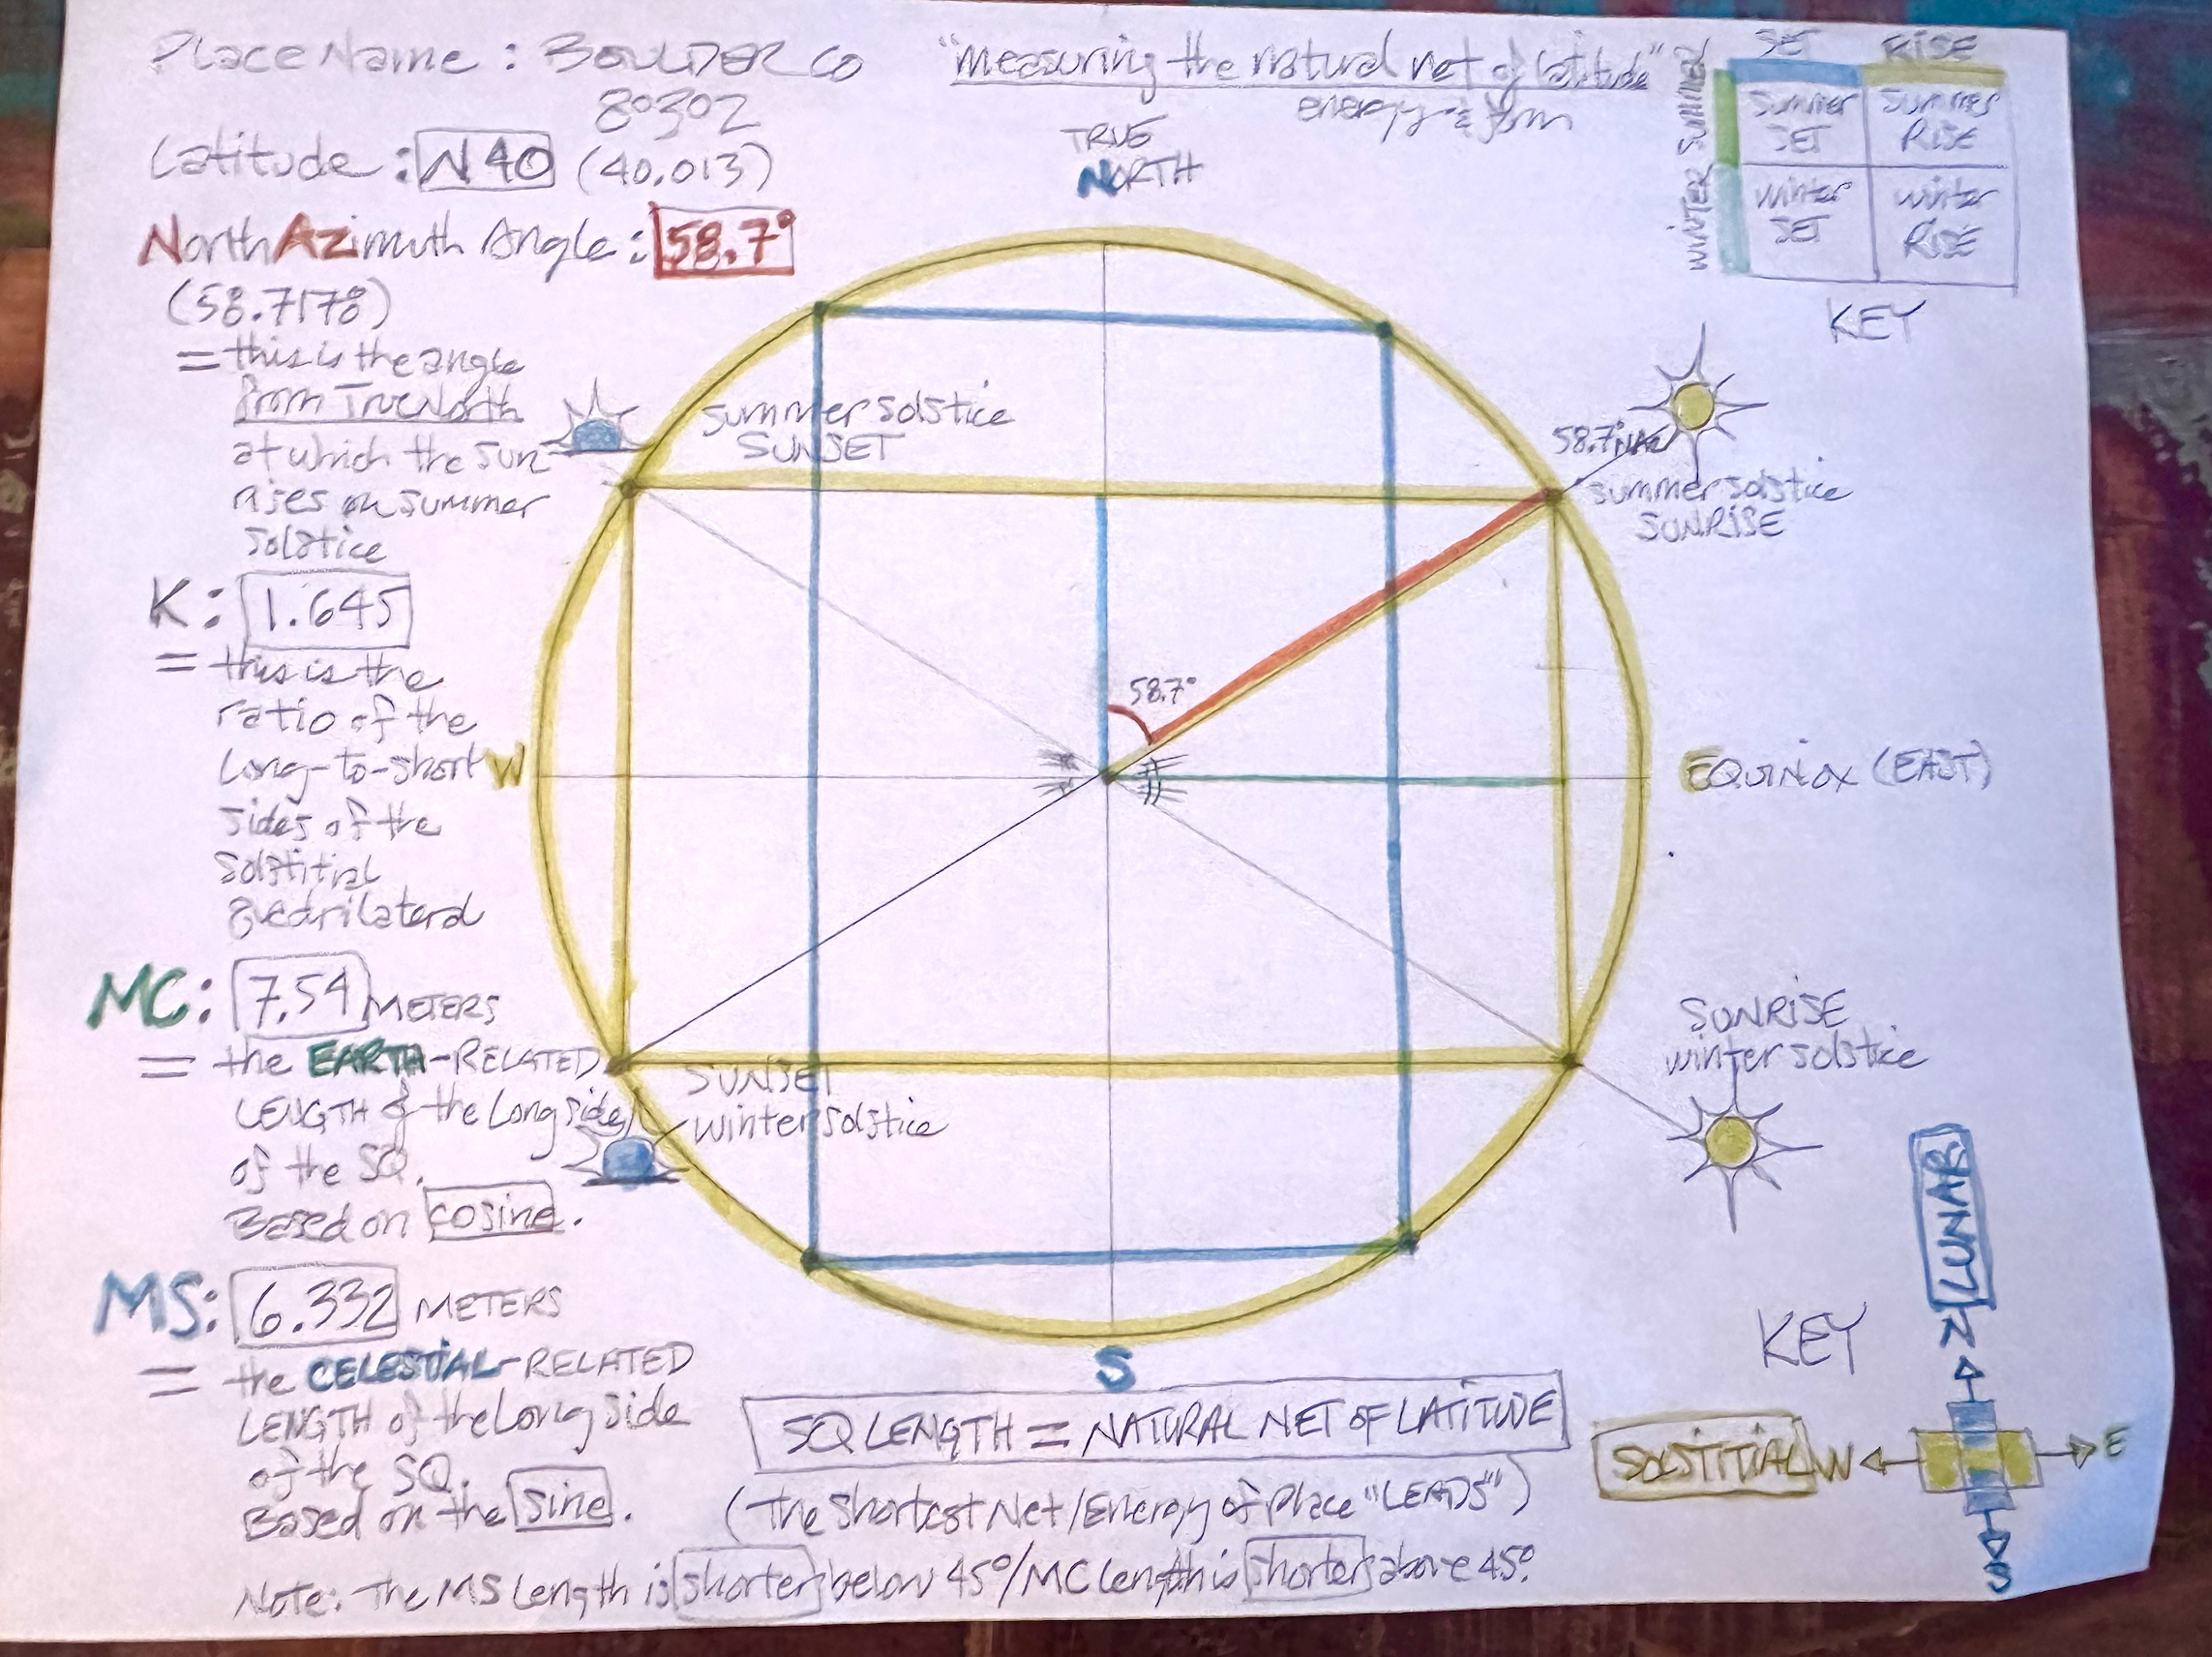 Place Name: BOULDER CO
80302
Latitude: N 40 (40.013)
North Azimuth Angle: 58.7°
(58.7178)
= this is the angle
from True North
at which the sun
rises on summer
solstice
K: 1.645
= this is the
ratio of the
Long-to-short
sides of the
Solstitial
Quadrilateral
MC: 7.54 METERS
= the EARTH-RELATED
LENGTH of the Long side
of the SQ.
Based on cosine.
MS: 6.332 METERS
= the CELESTIAL-RELATED
LENGTH of the Long side
of the SQ.
Based on the sine.
"measuring the natural net of latitude"
energy & form
TRUE
NORTH
summer solstice
SUNSET
58.7° NAZ
summer solstice
SUNRISE
58.7°
W
EQUINOX (EAST)
SUNRISE
winter solstice
SUNSET
winter solstice
S
SET RISE
SUMMER
WINTER
Summer
SET
Summer
RISE
winter
SET
winter
RISE
KEY
KEY
LUNAR
N
SOLSTITIAL W
E
S
SQ LENGTH = NATURAL NET OF LATITUDE
(The Shortest Net/Energy of Place "LEADS")
Note: The MS Length is shorter below 45°/MC Length is shorter above 45°.